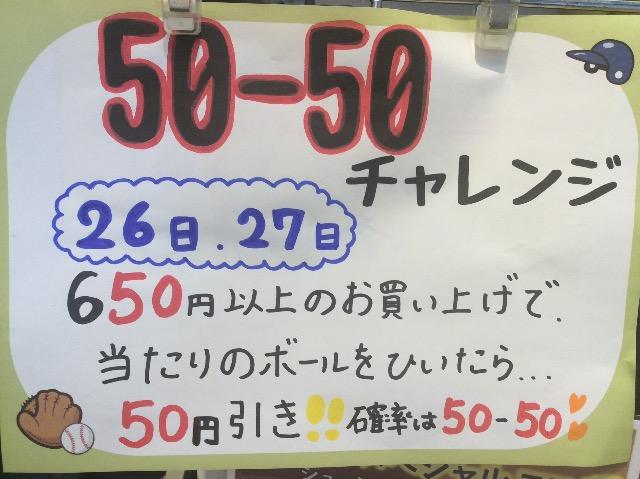 50-50
チャレンジ
26日.27日
650円以上のお買い上げで.
当たりのボールをひいたら...
50円引き!! 確率は50-50